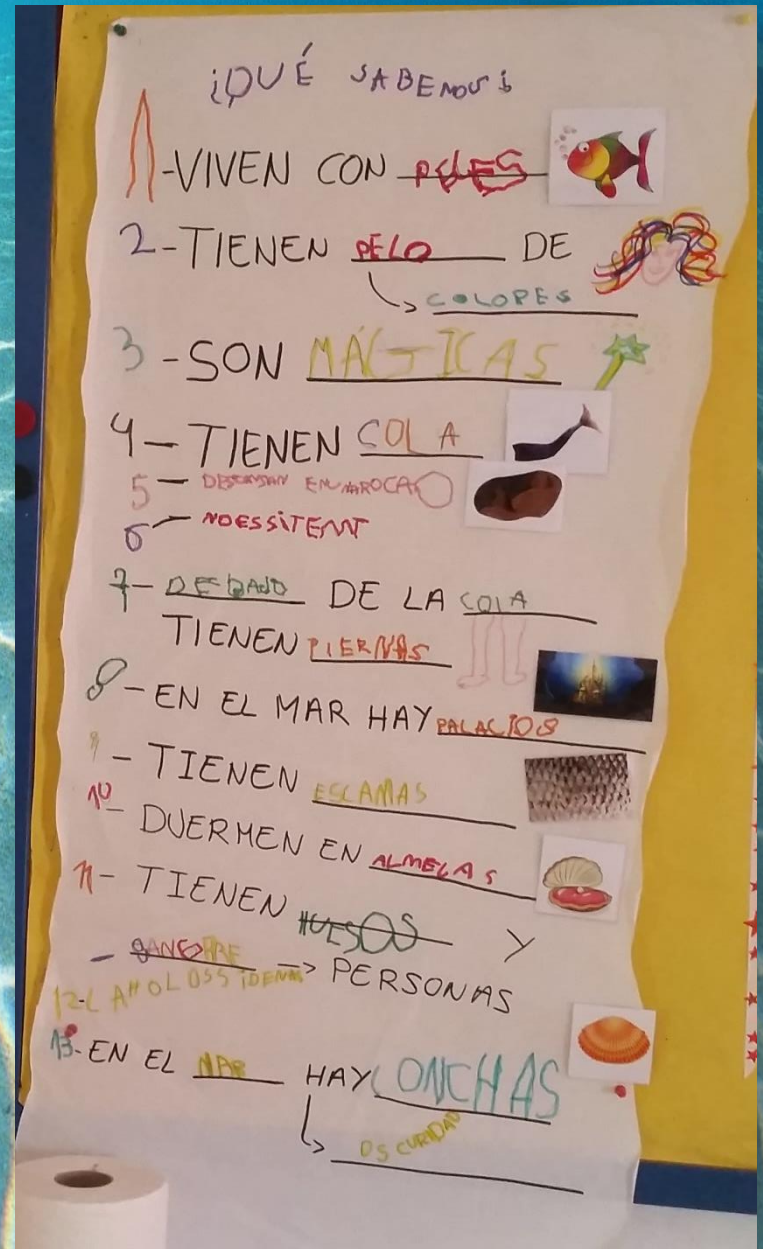 ¡QUÉ SABEMOS!
1-VIVEN CON PECES
2-TIENEN PELO DE
COLORES
3-SON MÁGICAS
4-TIENEN COLA
5-DESCANSAN EN ROCA
6-NOESSITENT
7-DEBAJO DE LA COLA
TIENEN PIERNAS
8-EN EL MAR HAY PALACIOS
9-TIENEN ESCAMAS
10-DUERMEN EN ALMEGAS
11-TIENEN HUESOS Y
-SANGRE → PERSONAS
12-
13-EN EL MAR HAY CONCHAS
OSCURIDAD